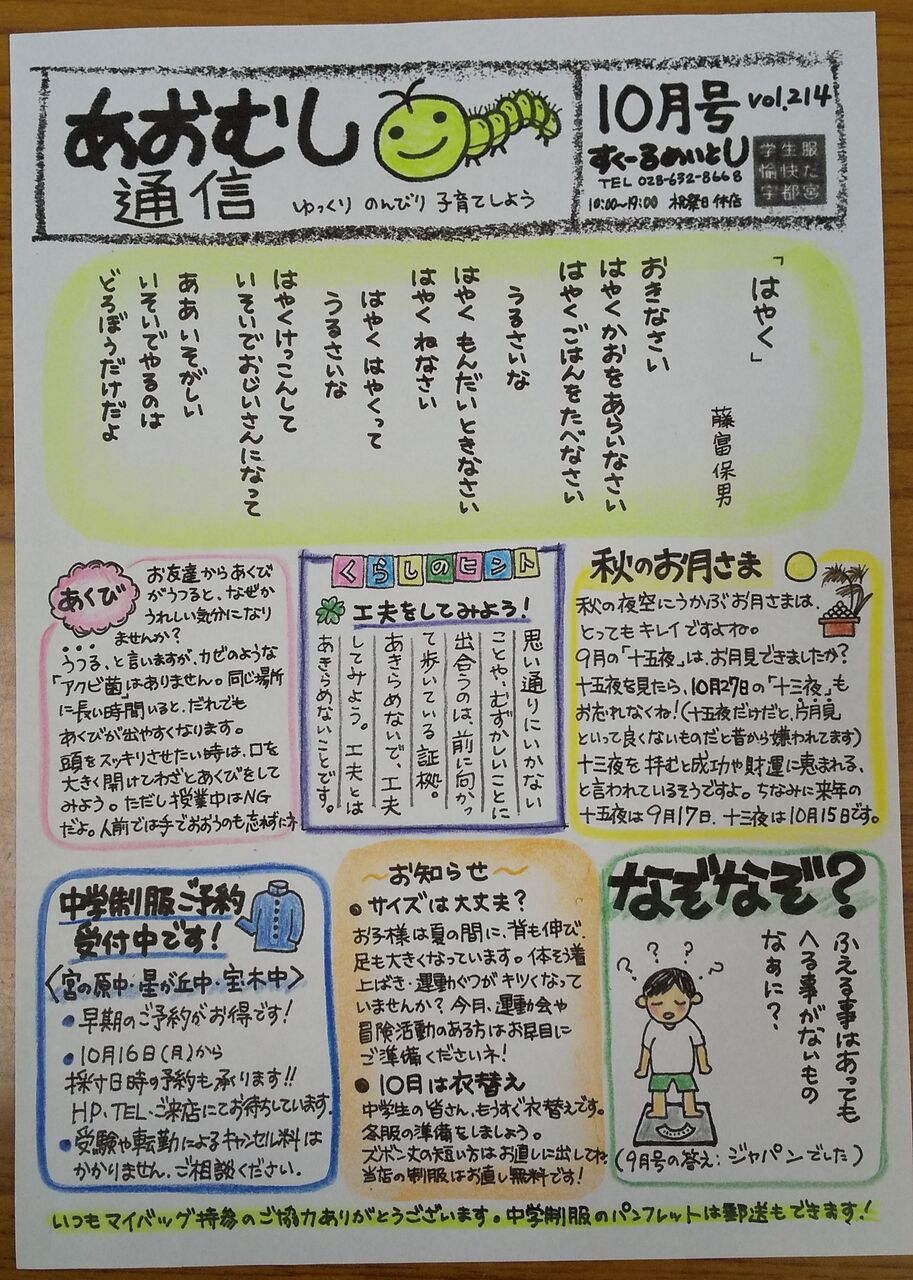 あおむし
通信
ゆっくり のんびり 子育てしよう
10月号 vol.214
すくーるめいとU
TEL 028-632-8668
10:00~19:00 水祭日休店
学生服
愉快だ
宇都宮
「はやく」
藤富保男
おきなさい
はやくかおをあらいなさい
はやくごはんをたべなさい
うるさいな
はやく もんだいときなさい
はやく ねなさい
はやく はやくって
うるさいな
はやくけっこんして
いそいでおじいさんになって
ああいそがしい
いそいでやるのは
どろぼうだけだよ
あくび
お友達からあくび
がうつると、なぜか
うれしい気分になり
ませんか?
うつる、と言いますが、カゼのような
「アクビ菌」はありません。同じ場所
に長い時間いると、だれでも
あくびが出やすくなります。
頭をスッキリさせたい時は、口を
大きく開けてわざとあくびをして
みよう。ただし授業中はNG
だよ。人前では手でおおうのも忘れずにネ
くらしのヒント
工夫をしてみよう!
思い通りにいかない
ことや、むずかしいことに
出合うのは、前に向かっ
て歩いている証拠。
あきらめないで、工夫
してみよう。工夫とは
あきらめないことです。
秋のお月さま
秋の夜空にうかぶお月さまは、
とってもキレイですよね。
9月の「十五夜」は、お月見できましたか?
十五夜を見たら、10月27日の「十三夜」も
お忘れなくね!(十五夜だけだと、片月見
といって良くないものだと昔から嫌われてます)
十三夜を拝むと成功や財運に恵まれる、
と言われているそうですよ。ちなみに来年の
十五夜は9月17日、十三夜は10月15日です。
中学制服ご予約
受付中です!
〈宮の原中・星が丘中・宝木中〉
●早期のご予約がお得です!
●10月16日(月)から
採寸日時の予約も承ります!!
HP・TEL・ご来店にてお待ちしています。
●受験や転勤によるキャンセル料は
かかりません。ご相談ください。
~お知らせ~
●サイズは大丈夫?
お子様は夏の間に、背も伸び、
足も大きくなっています。体そう着
上ばき・運動ぐつがキツくなって
いませんか? 今月、運動会や
冒険活動のある方はお早目に
ご準備くださいネ!
●10月は衣替え
中学生の皆さん、もうすぐ衣替えです。
冬服の準備をしましょう。
ズボン丈の短い方はお直しに出してね
当店の制服はお直し無料です!
なぞなぞ?
ふえる事はあっても
へる事がないもの
なぁに?
? ? ? ?
(9月号の答え:ジャパンでした)
いつもマイバッグ持参のご協力ありがとうございます。中学制服のパンフレットは郵送もできます!